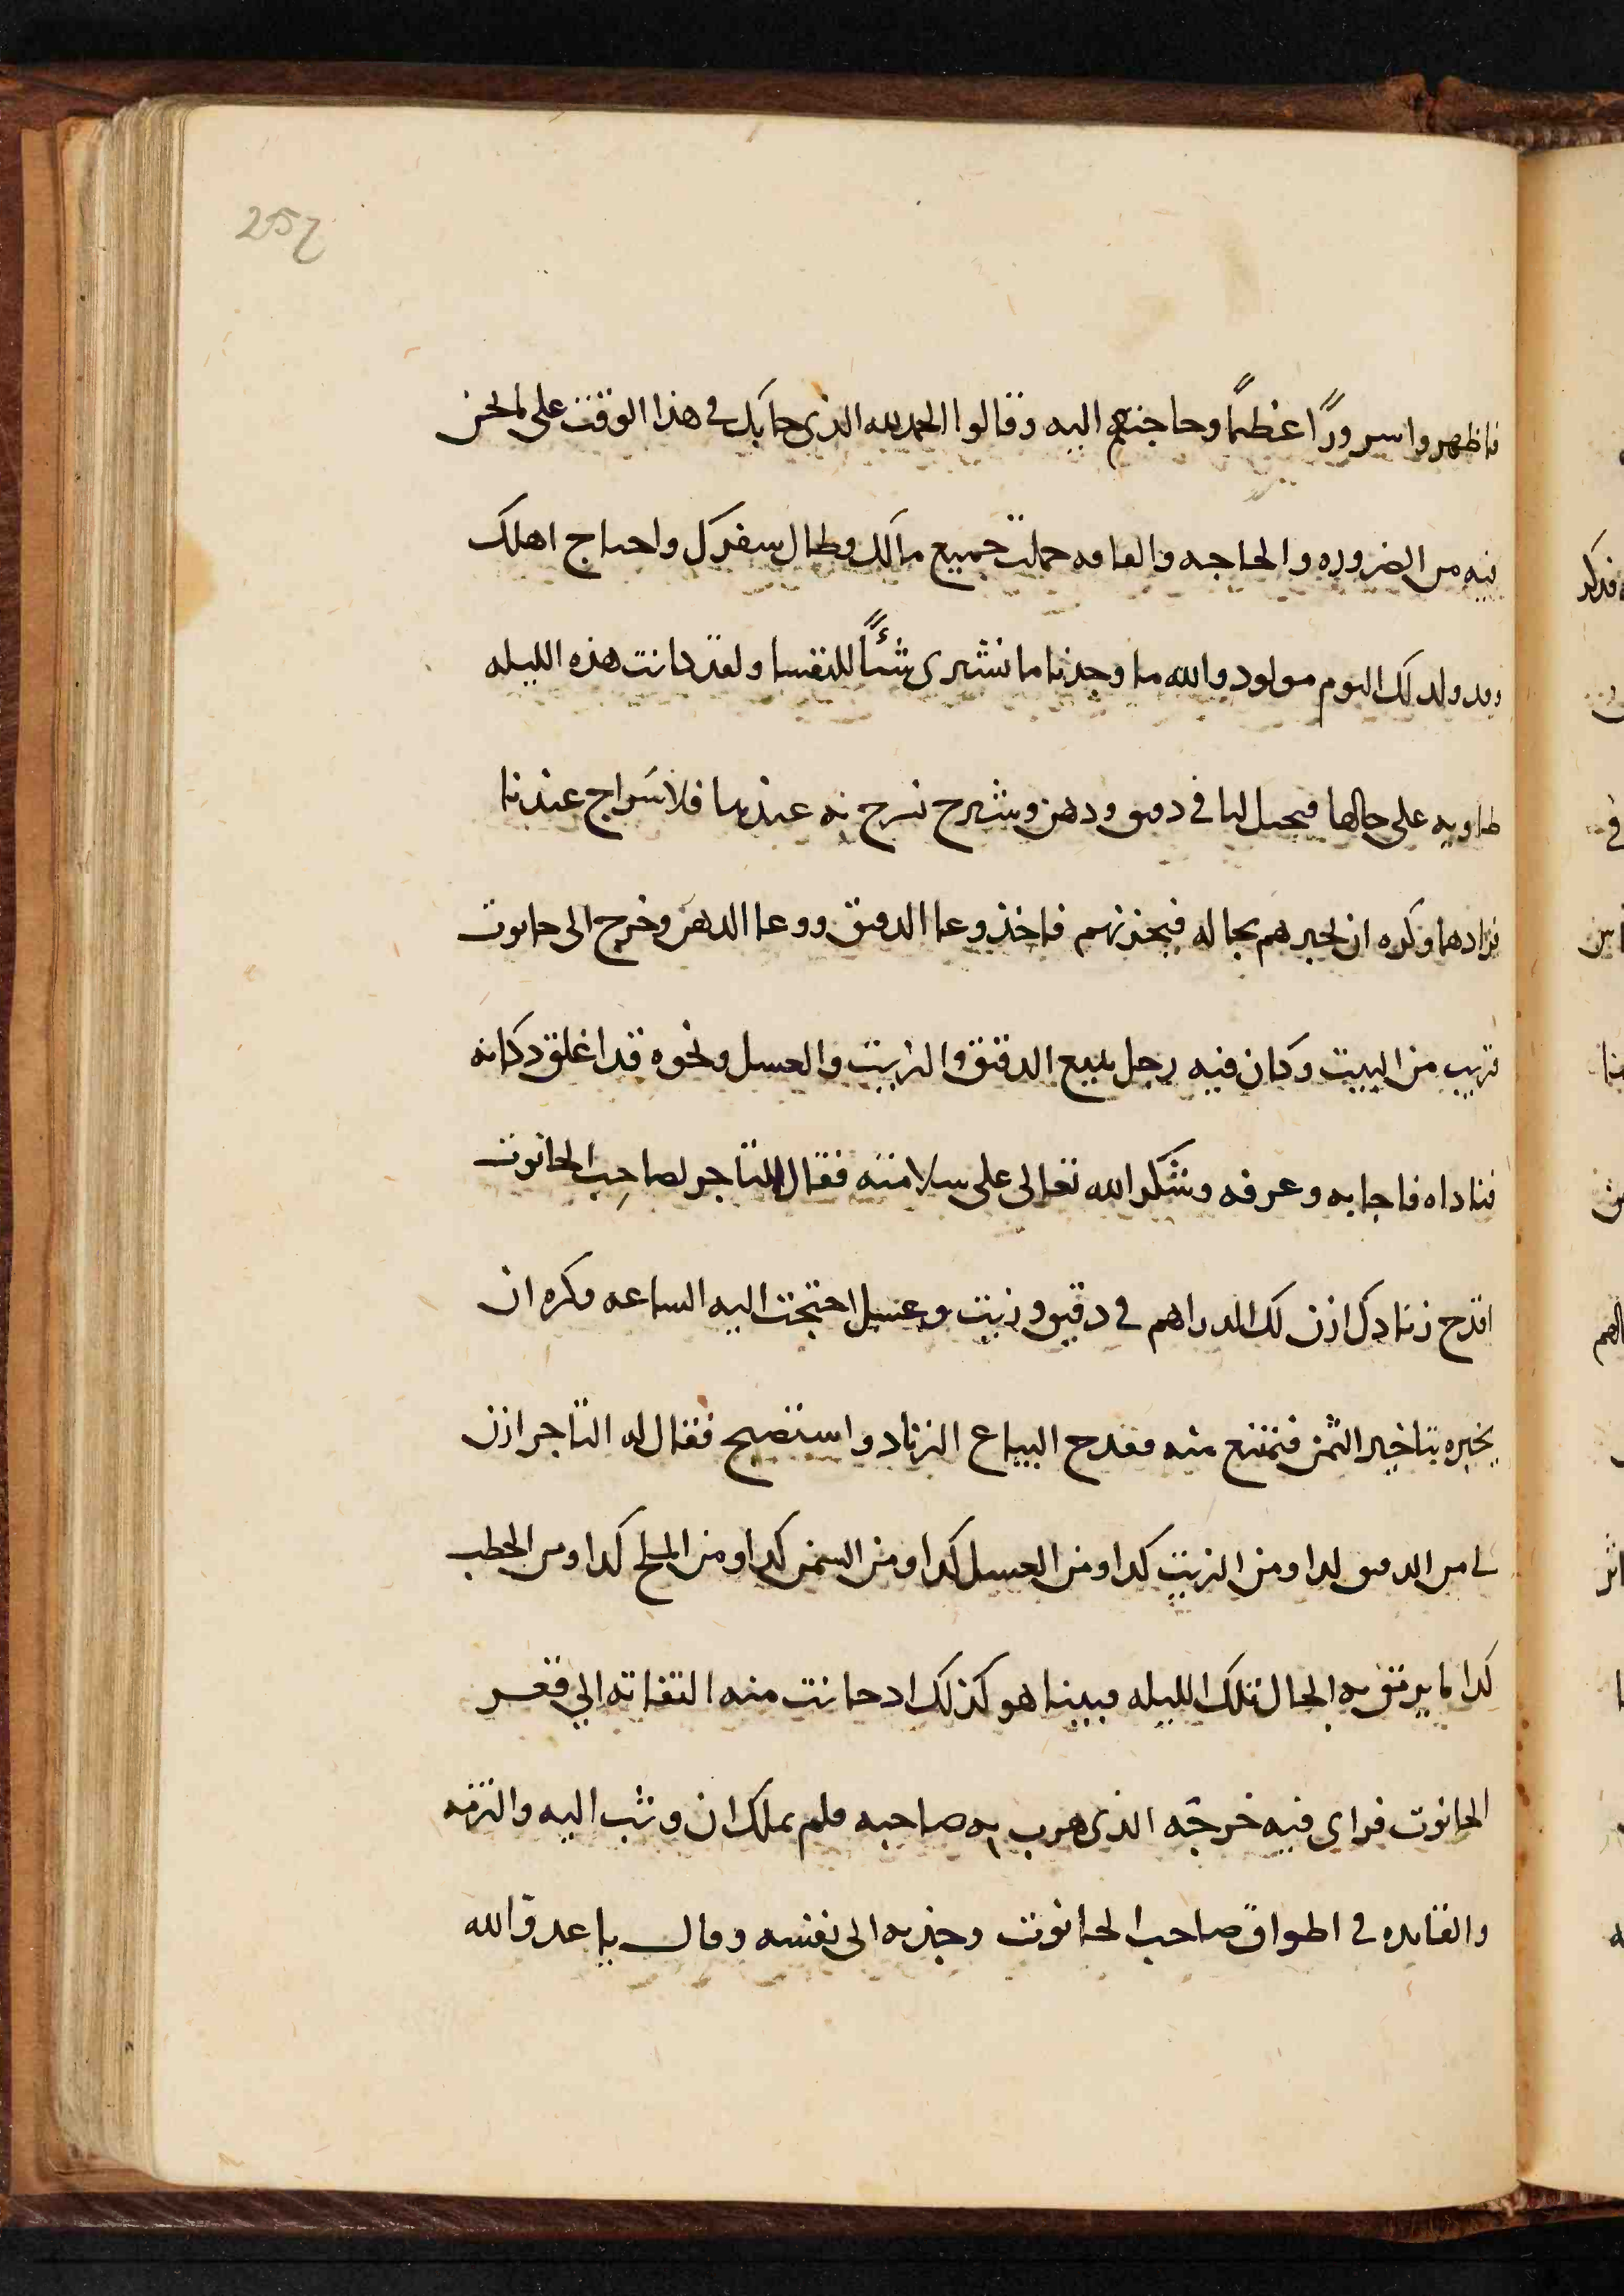 257
فاظهروا سرورًا عظيمًا وحاجتهم اليه وقالوا الحمد لله الذي جا بك في هذا الوقت على ما نحن
فيه من الضروره والحاجه والفاقه حملت جميع مالك وطال سفرك واحتاج اهلك
وقد ولد لك اليوم مولود والله ما وجدنا ما نشترى شئًا للنفسا ولقد كانت هذه الليله
طاويه على حالها فتحيل لنا في دقيق ودهن وشيرج نسرج به عندنا فلا سراج عندنا
فزادهما وكره ان يخبرهم بحاله فيحزنهم فاخذ وعا الدقيق ووعا الدهن وخرج الى حانوت
قريب من البيت وكان فيه رجل يبيع الدقيق والزيت والعسل ونحوه قد اغلق دكانه
فناداه فاجابه وعرفه وشكر الله تعالى على سلامته فقال التاجر لصاحب الحانوت
اقدح زنادك ازن لك الدراهم في دقيق وزيت وعسل احتجت اليه الساعه وكره ان
يخبره بتاخير الثمن فيمتنع منه فقدح البياع الزناد واستصبح فقال له التاجر ازن
لى من الدقيق كدا ومن الزيت كدا ومن العسل كدا ومن السمن كدا ومن الملح كدا ومن الحطب
كدا ما يرتفق به الحال تلك الليله فبينما هو كذلك اد حانت منه التفاته الي قعر
الحانوت فراى فيه خرجه الذى هرب به صاحبه فلم يملك ان وثب اليه والتزمه
والقا يده في اطواق صاحب الحانوت وجذبه الى نفسه وقال يا عدو الله